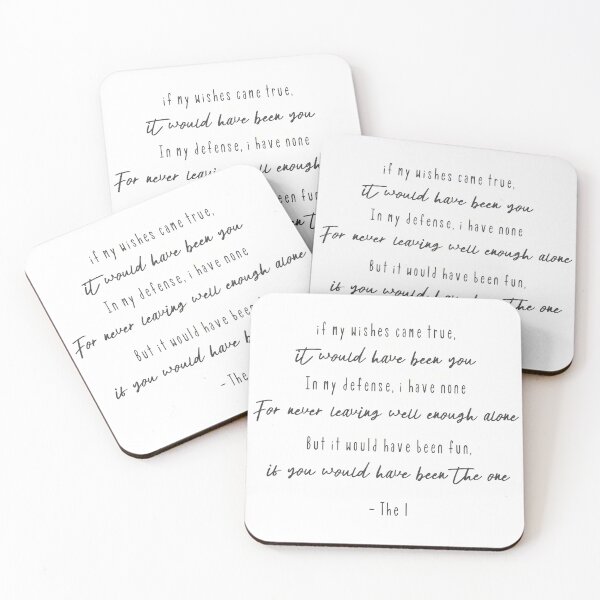 if my wishes came true,
it would have been you
In my defense, i have none
For never leaving well enough
fun,
if my wishes came true,
it would have been you
In my defense, i have none
For never leaving well enough alone
But it would have been fun,
if you would have been the one
if my wishes came true,
it would have been you
In my defense, i have none
For never leaving well enough alone
But it would have been
if you would have
- The
if my wishes came true,
it would have been you
In my defense, i have none
For never leaving well enough alone
But it would have been fun,
if you would have been The one
- The 1